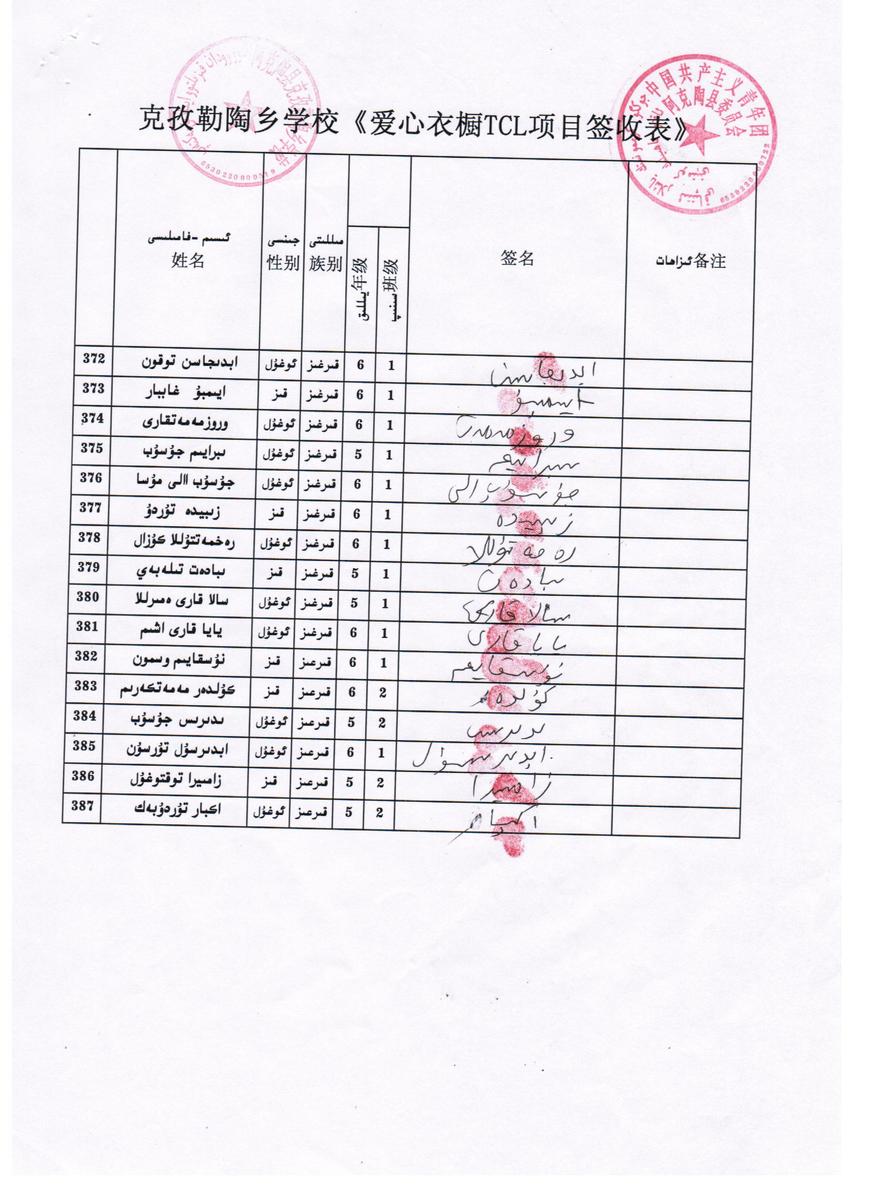 克孜勒陶乡学校《爱心衣橱TCL项目签收表》
中国共产主义青年团
阿克陶县委员会
6530220000722
ئىسىم -فامىلىسى جىنسى مىللىتى
姓名 性别 族别 年级 يىللىق 班级 سىنىپ 签名 备注 ئىزاھات
372 ابدىجاسىن توقون ئوغۇل قىرغىز 6 1
373 ايىمبۇ غاببار قىز قىرغىز 6 1
374 وروزمەمەتقارى ئوغۇل قىرغىز 6 1
375 ىبرايىم جۇسۇب ئوغۇل قىرغىز 5 1
376 جۇسۇب االى مۇسا ئوغۇل قىرغىز 6 1
377 زىبيدە تۇردۇ قىز قىرغىز 6 1 زىبيدە
378 رەخمەتتۇللا كۇزال ئوغۇل قىرغىز 6 1
379 ىبادەت تىلەبەي قىز قىرغىز 5 1 ىبادەت
380 سالا قارى ەمىرلىلا ئوغۇل قىرغىز 5 1 سالا قارى
381 يايا قارى اشىم ئوغۇل قىرغىز 6 1 يايا قارى
382 نۇسقايىم وسمون قىز قىرعىز 6 1
383 كۇلدەر مەمەتكەرىم قىز قىرعىز 6 2
384 ىدىرىس جۇسۇب ئوغۇل قىرعىز 5 2
385 ابدىرسۇل تۇرسۇن ئوغۇل قىرعىز 6 1
386 زامىيرا توقتوغۇل قىز قىرعىز 5 2
387 اكبار تۇردۇبەك ئوغۇل قىرعىز 5 2